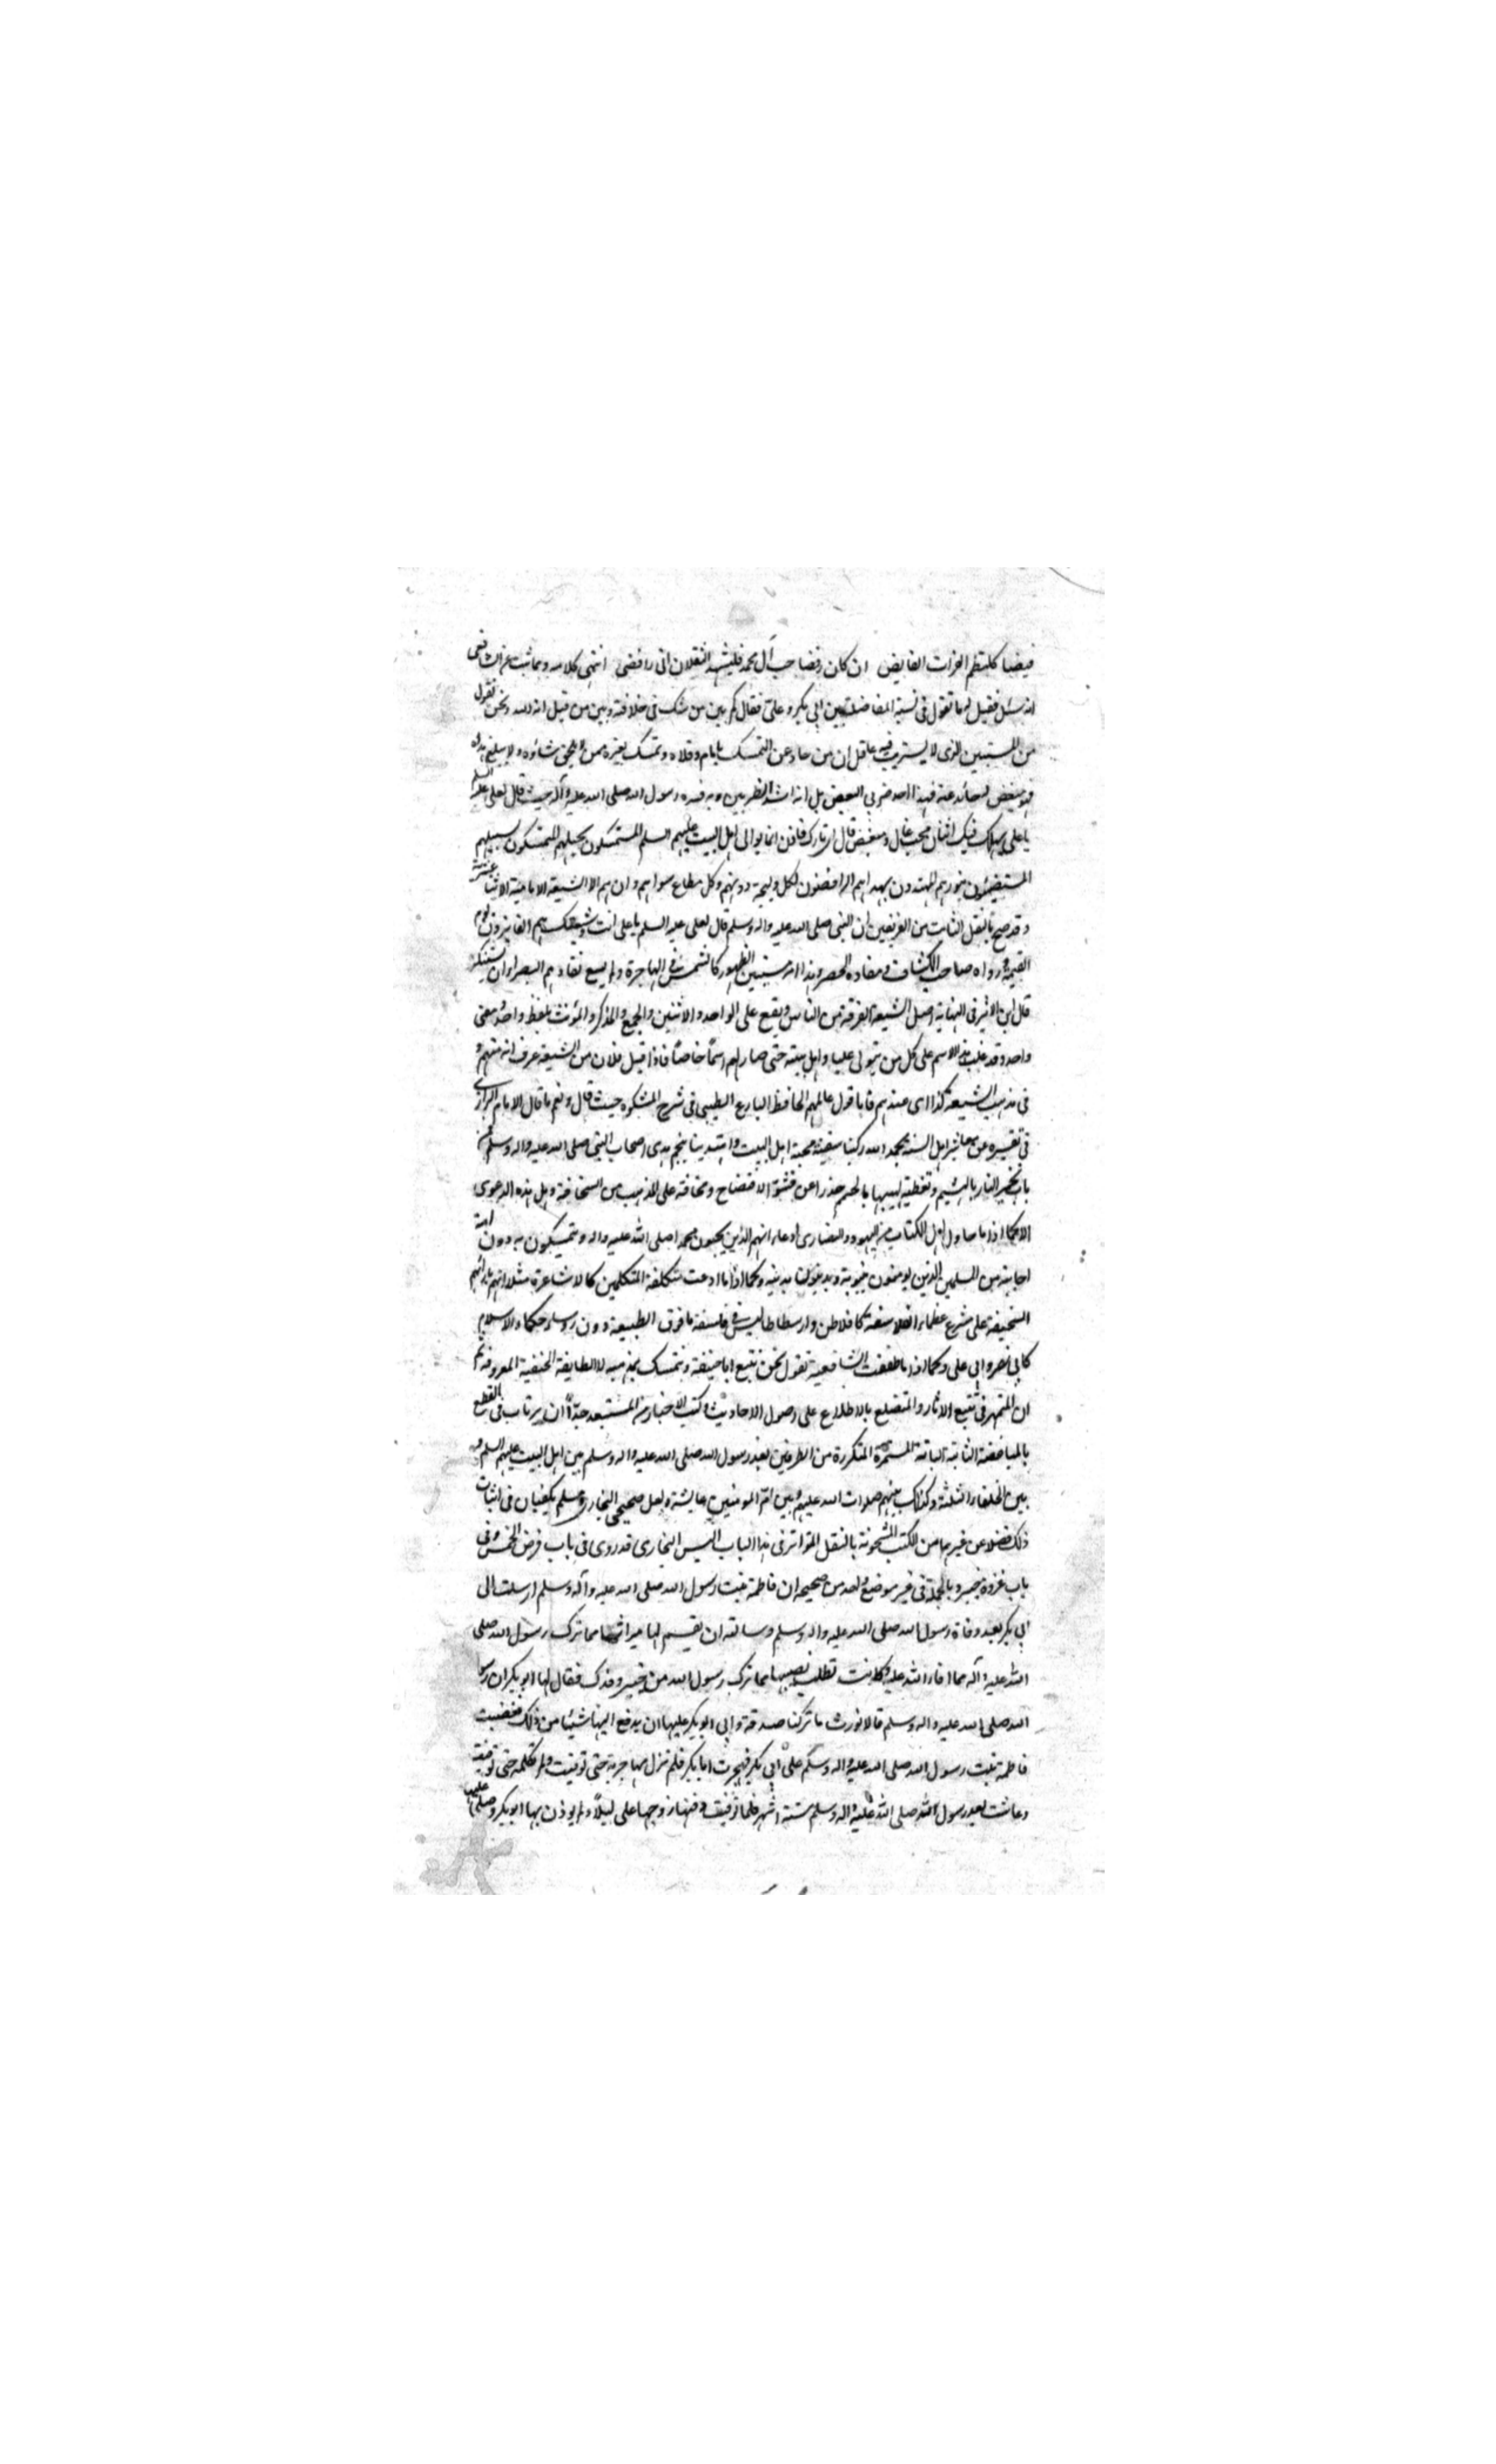 فيضا كملتطم الفرات الفايض ان كان رفضا حب آل محمد فليشهد الثقلان انى رافضى انتهى كلامه ومما ثبت عن الشافعى
انه سئل فقيل له ما تقول فى نسبة المفاضلة بين ابى بكر وعلى فقال كم بين من شك فى خلافته وبين من قيل انه الله ونحن نقول
من المستبين الذى لا يستريب فيه عاقل ان من حاد عن التمسك بامام وقلاه وتمسك بغيره ممن لا يلحق شاؤه ولا يبلغ مداه
فهو مبغض له حائد عنه فهذا احد ضربى البغض بل انه اشد الضربين وبه فسره رسول الله صلى الله عليه وآله حيث قال لعلى عليه السلم
يا على يهلك فيك اثنان محب غال ومبغض قال او تارك فاذن انما يوالى اهل البيت عليهم السلم المستمسكون بحبلهم المتمسكون بسبيلهم
المستضيئون بنورهم المهتدون بهداهم الرافضون لكل وليجة دونهم وكل مطاع سواهم وان هم الا الشيعة الامامية الاثنا عشرية
وقد صح بالنقل الثابت من الفريقين ان النبى صلى الله عليه واله وسلم قال لعلى عليه السلم يا على انت وشيعتك هم الفايزون يوم
القيمة ورواه صاحب الكشاف ومفاده الحصر وهذا امر مستبين الظهور كالشمس فى الهاجرة ولم يسع نقادهم البصراء ان يستنكر
قال ابن الاثير فى النهاية اصل الشيعة الفرقة من الناس ويقع على الواحد والاثنين والجمع والمذكر والمؤنث بلفظ واحد ومعنى
واحد وقد غلب هذا الاسم على كل من يتولى عليا واهل بيته حتى صار لهم اسماً خاصاً فاذا قيل فلان من الشيعة عرف انه منهم و
فى مذهب الشيعة كذا اى عندهم فاما قول عالمهم الحافظ البارع الطيبى فى شرح المشكوة حيث قال ونعم ما قال الامام الرازى
فى تفسيره نحن معاشر اهل السنة بحمد الله ركبنا سفينة محبة اهل البيت واهتدينا بنجم هدى اصحاب النبى صلى الله عليه واله وسلم فمن
باب النار بالهشيم وتغطية لهيبها بالحمم حذرا من فشوة الافتضاح ومخافة على المذهب من السخافة وهل هذه الدعوى
الا كما اذا ما حاول اهل الكتاب من اليهود والنصارى ادعاء انهم الذين يحبون محمدا صلى الله عليه واله ويتمسكون به دون امة
اجابته من المسلمين الذين يومنون بنبوته ويدينون بدينه وكما اذا ما ادعت متكلفة المتكلمين كالاشاعرة مثلا انهم بارائهم
السخيفة على مشرع عظماء الفلاسفة كافلاطن وارسطاطاليس فى فلسفة ما فوق الطبيعة دون رؤساء حكماء الاسلام
كابى نصر وابى على وكما اذا ما طفقت الشافعية تقول نحن نتبع ابا حنيفة ونتمسك بمذهبه لا الطايفة الحنفية المعروفة ثم
ان المتمهر فى تتبع الاثار والمتضلع بالاطلاع على اصول الاحاديث وكتب الاخبار من المستبعد جدّاً ان يرتاب فى القطع
بالمباغضة الثابتة الباتة المستمرة المتكررة من الطرفين بعد رسول الله صلى الله عليه واله وسلم بين اهل البيت عليهم السلم و
بين الخلفاء الثلثة وكذلك بينهم صلوات الله عليهم وبين ام المومنين عايشة ولعل صحيحى البخارى ومسلم يكفيان فى اثبات
ذلك فضلا عن غيرهما من الكتب المشحونة بالنقل المتواتر فى هذا الباب اليس البخارى قد روى فى باب فرض الخمس وفى
باب غزوة خيبر وبالجملة فى غير موضع واحد من صحيحه ان فاطمة بنت رسول الله صلى الله عليه وآله وسلم ارسلت الى
ابى بكر بعد وفاة رسول الله صلى الله عليه واله وسلم وسالته ان يقسم لها ميراثها مما ترك رسول الله صلى
الله عليه وآله مما افاء الله عليه وكانت تطلب نصيبها مما ترك رسول الله من خيبر وفدك فقال لها ابو بكر ان رسول
الله صلى الله عليه واله وسلم قال لا نورث ما تركنا صدقة وابى ابو بكر عليها ان يدفع اليها شيئا من ذلك فغضبت
فاطمة بنت رسول الله صلى الله عليه واله وسلم على ابى بكر فهجرت ابا بكر فلم تزل مهاجرته حتى توفيت ولم تكلمه حتى توفيت
وعاشت بعد رسول الله صلى الله عليه واله وسلم ستة اشهر فلما توفيت دفنها زوجها على ليلاً ولم يوذن بها ابو بكر وصلى عليها